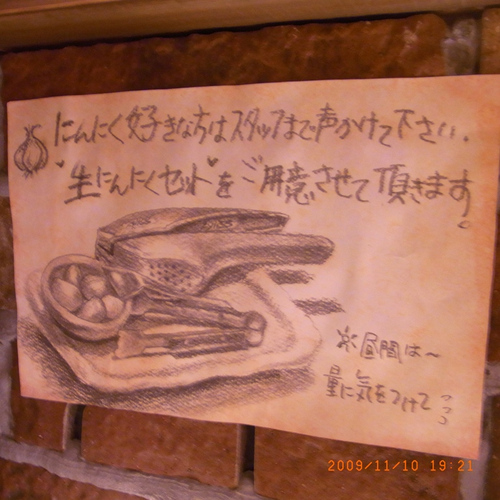 にんにく好きな方はスタッフまで声かけて下さい.
"生にんにくセット"をご用意させて頂きます。
※昼間は〜
量に気をつけて
2009/11/10 19:21